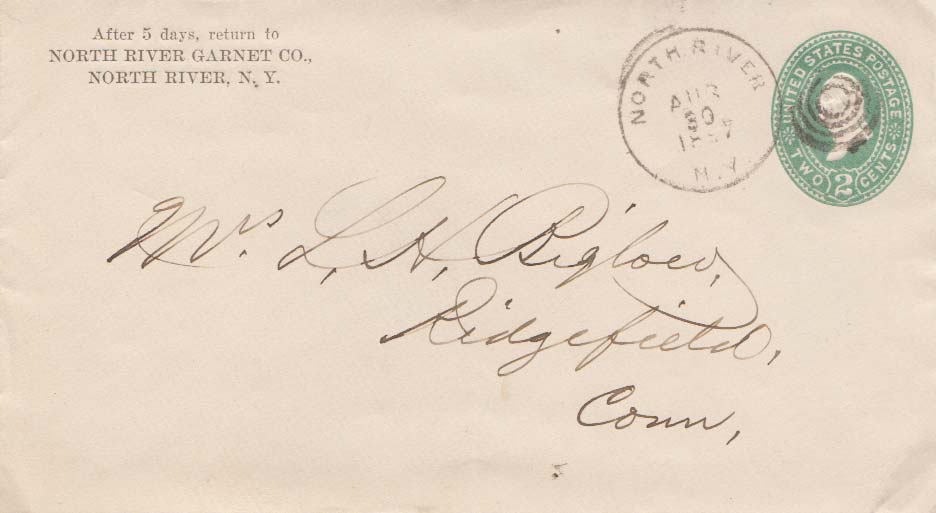 After 5 days, return to
NORTH RIVER GARNET CO.,
NORTH RIVER, N. Y.
NORTH RIVER
N.Y.
UNITED STATES POSTAGE
TWO 2 CENTS
Mrs. L. H. Biglow,
Ridgefield,
Conn,